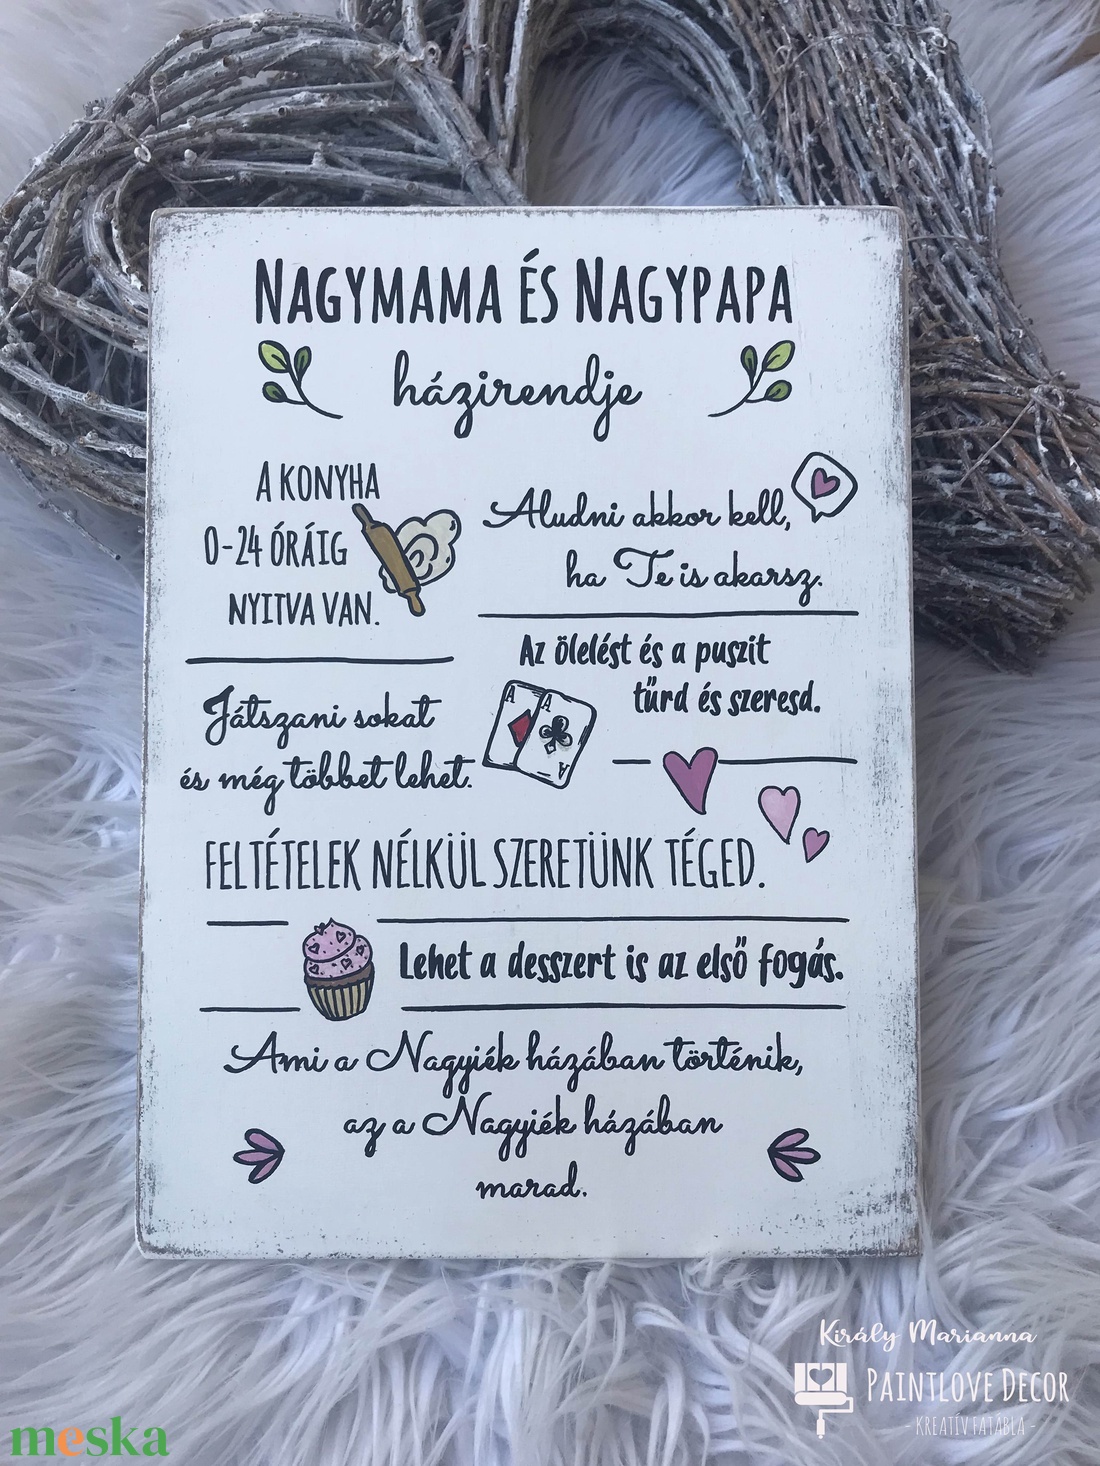 NAGYMAMA ÉS NAGYPAPA
házirendje
A KONYHA
0-24 ÓRÁIG
NYITVA VAN.
Aludni akkor kell,
ha Te is akarsz.
Az ölelést és a puszit
tűrd és szeresd.
Játszani sokat
és még többet lehet.
A
A
A
FELTÉTELEK NÉLKÜL SZERETÜNK TÉGED.
Lehet a desszert is az első fogás.
Ami a Nagyiék házában történik,
az a Nagyiék házában
marad.
Király Marianna
PAINTLOVE DECOR
- KREATÍV FATÁBLA -
meska